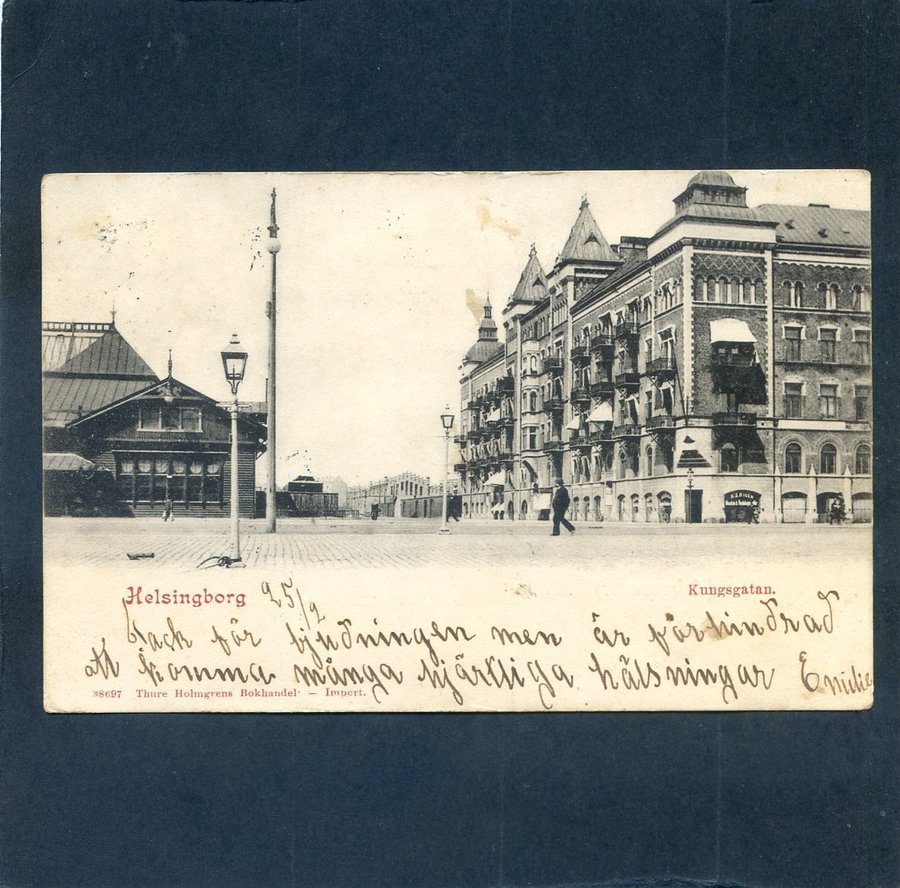 Helsingborg 25/2
Kungsgatan.
Tack för bjudningen men är förhindrad
att komma många hjärtliga hälsningar Emilie
38697 Thure Holmgrens Bokhandel — Import.